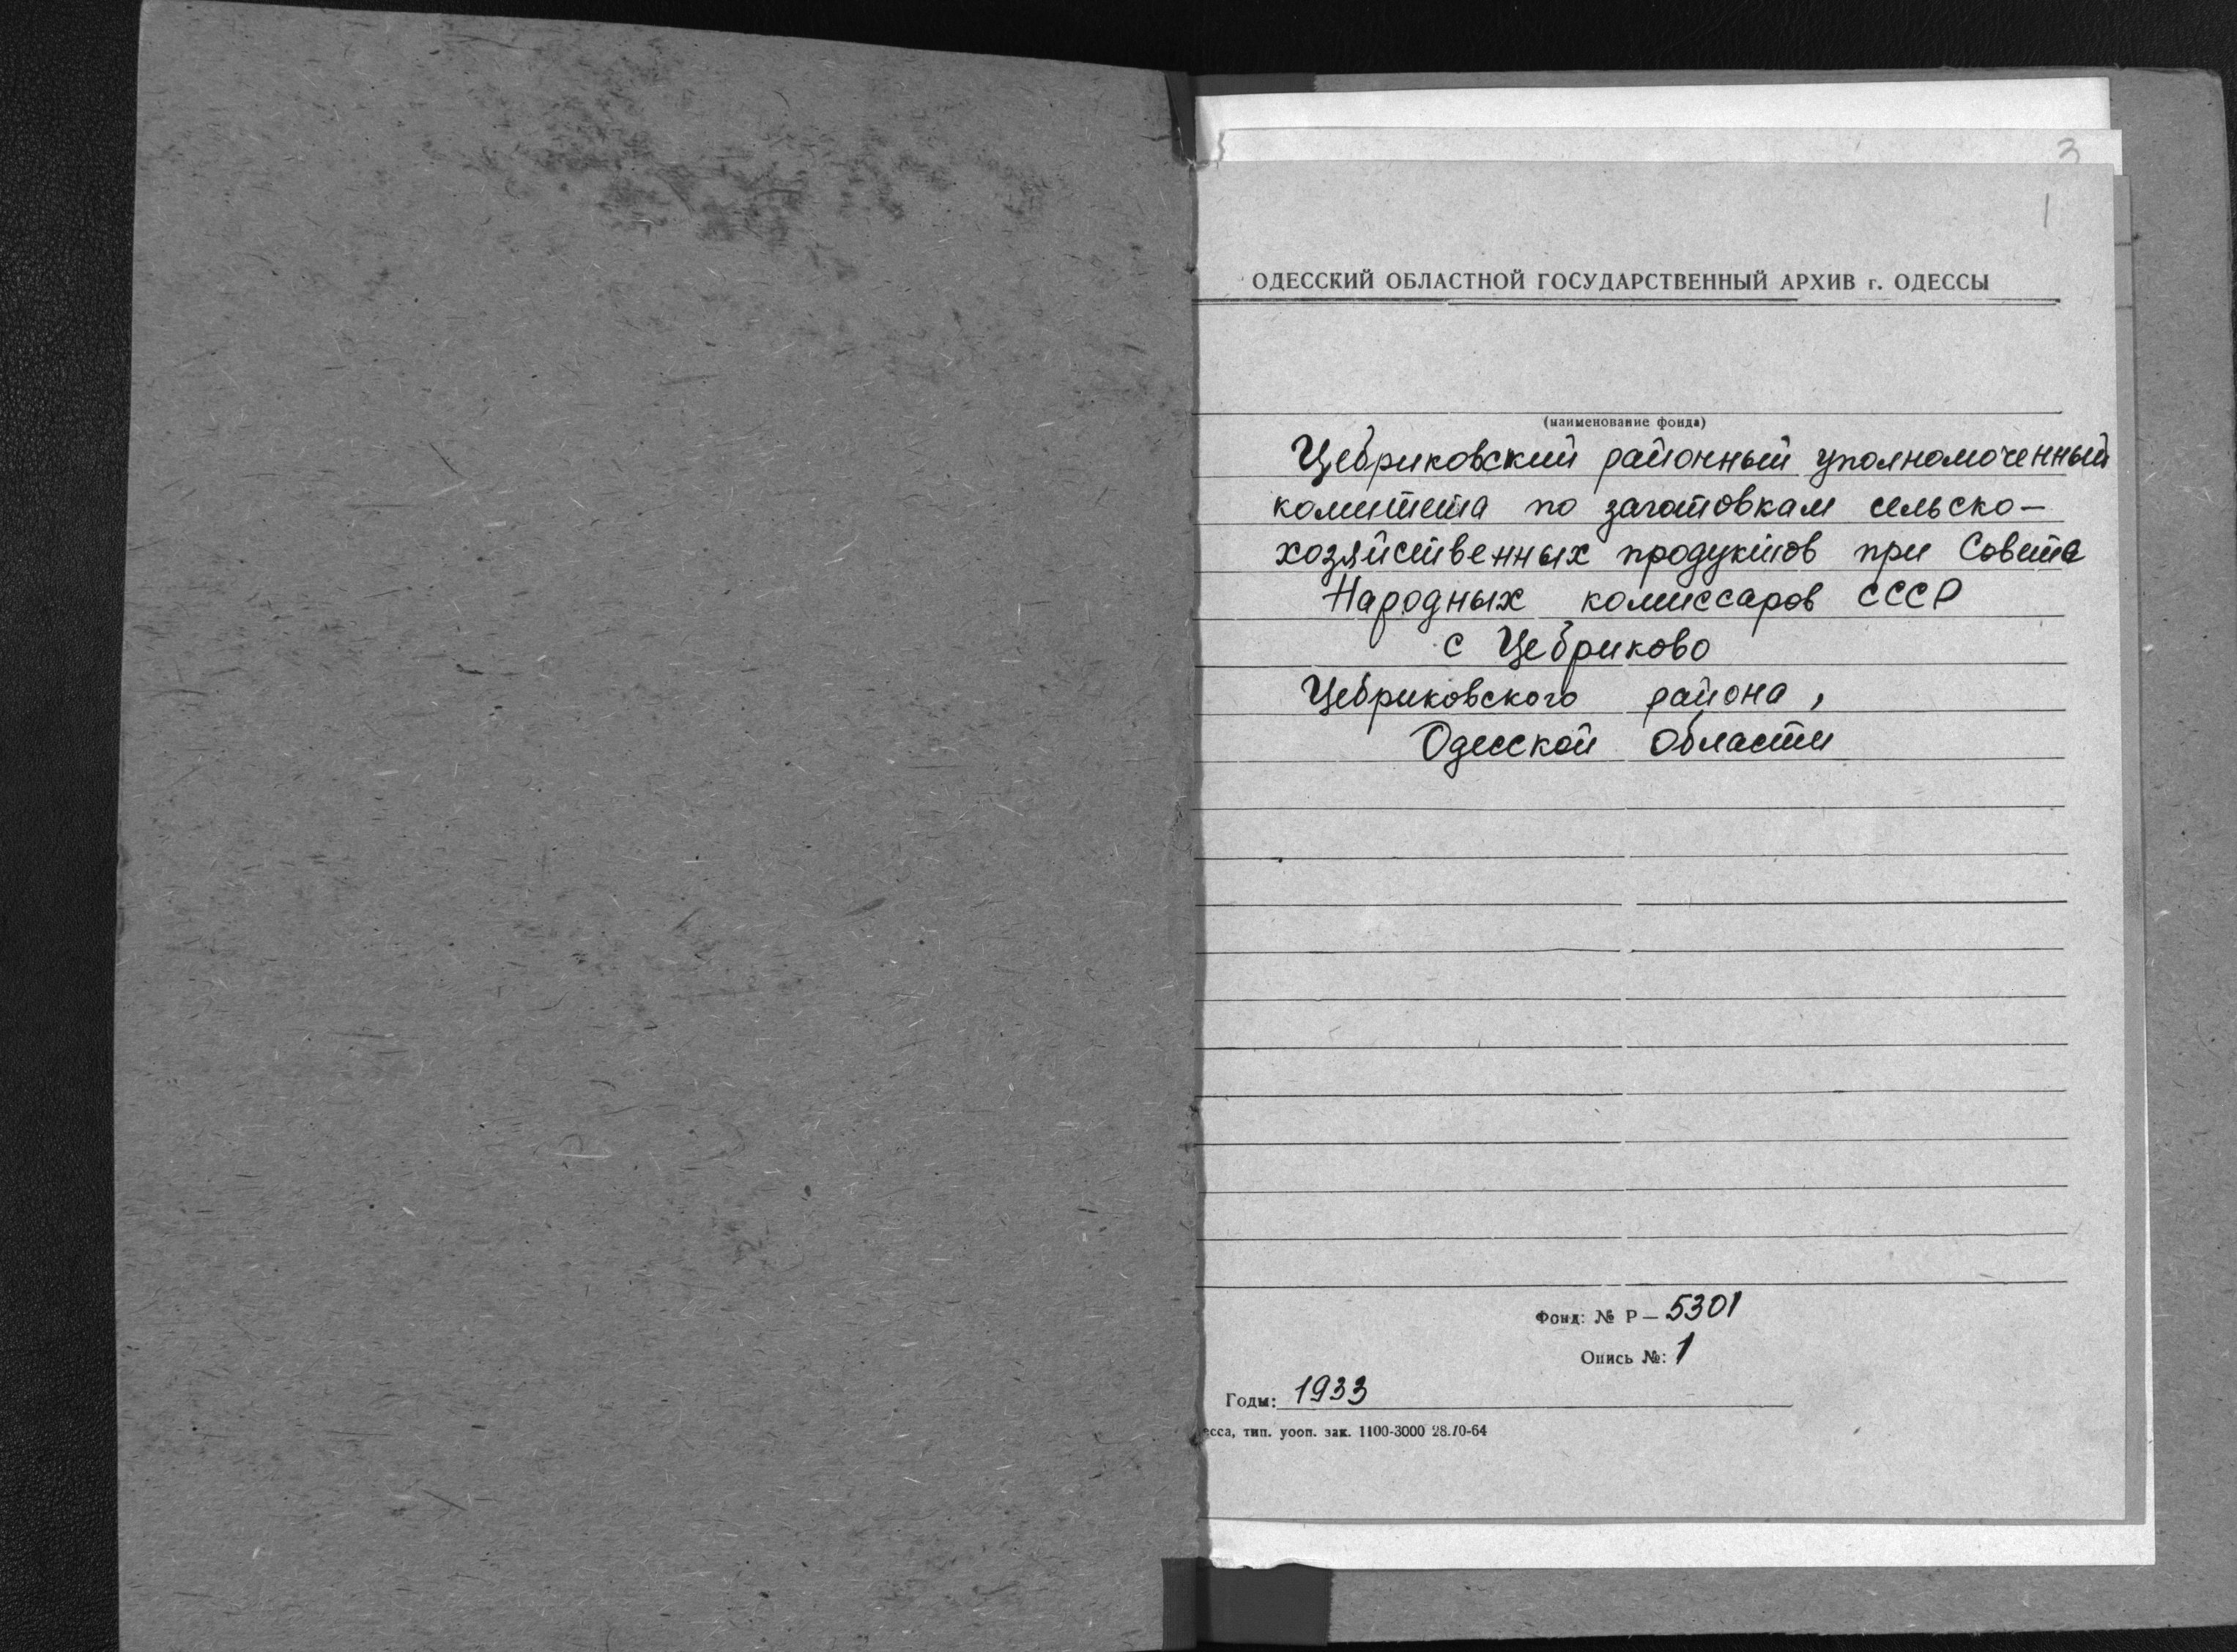 3
1
ОДЕССКИЙ ОБЛАСТНОЙ ГОСУДАРСТВЕННЫЙ АРХИВ г. ОДЕССЫ
(наименование фонда)
Цебриковский районный уполномоченный
комитета по заготовкам сельско-
хозяйственных продуктов при Совете
Народных комиссаров СССР
с Цебриково
Цебриковского района,
Одесской области
Фонд: № Р— 5301
Опись №: 1
Годы: 1933
есса, тип. уооп. зак. 1100-3000 28.10-64